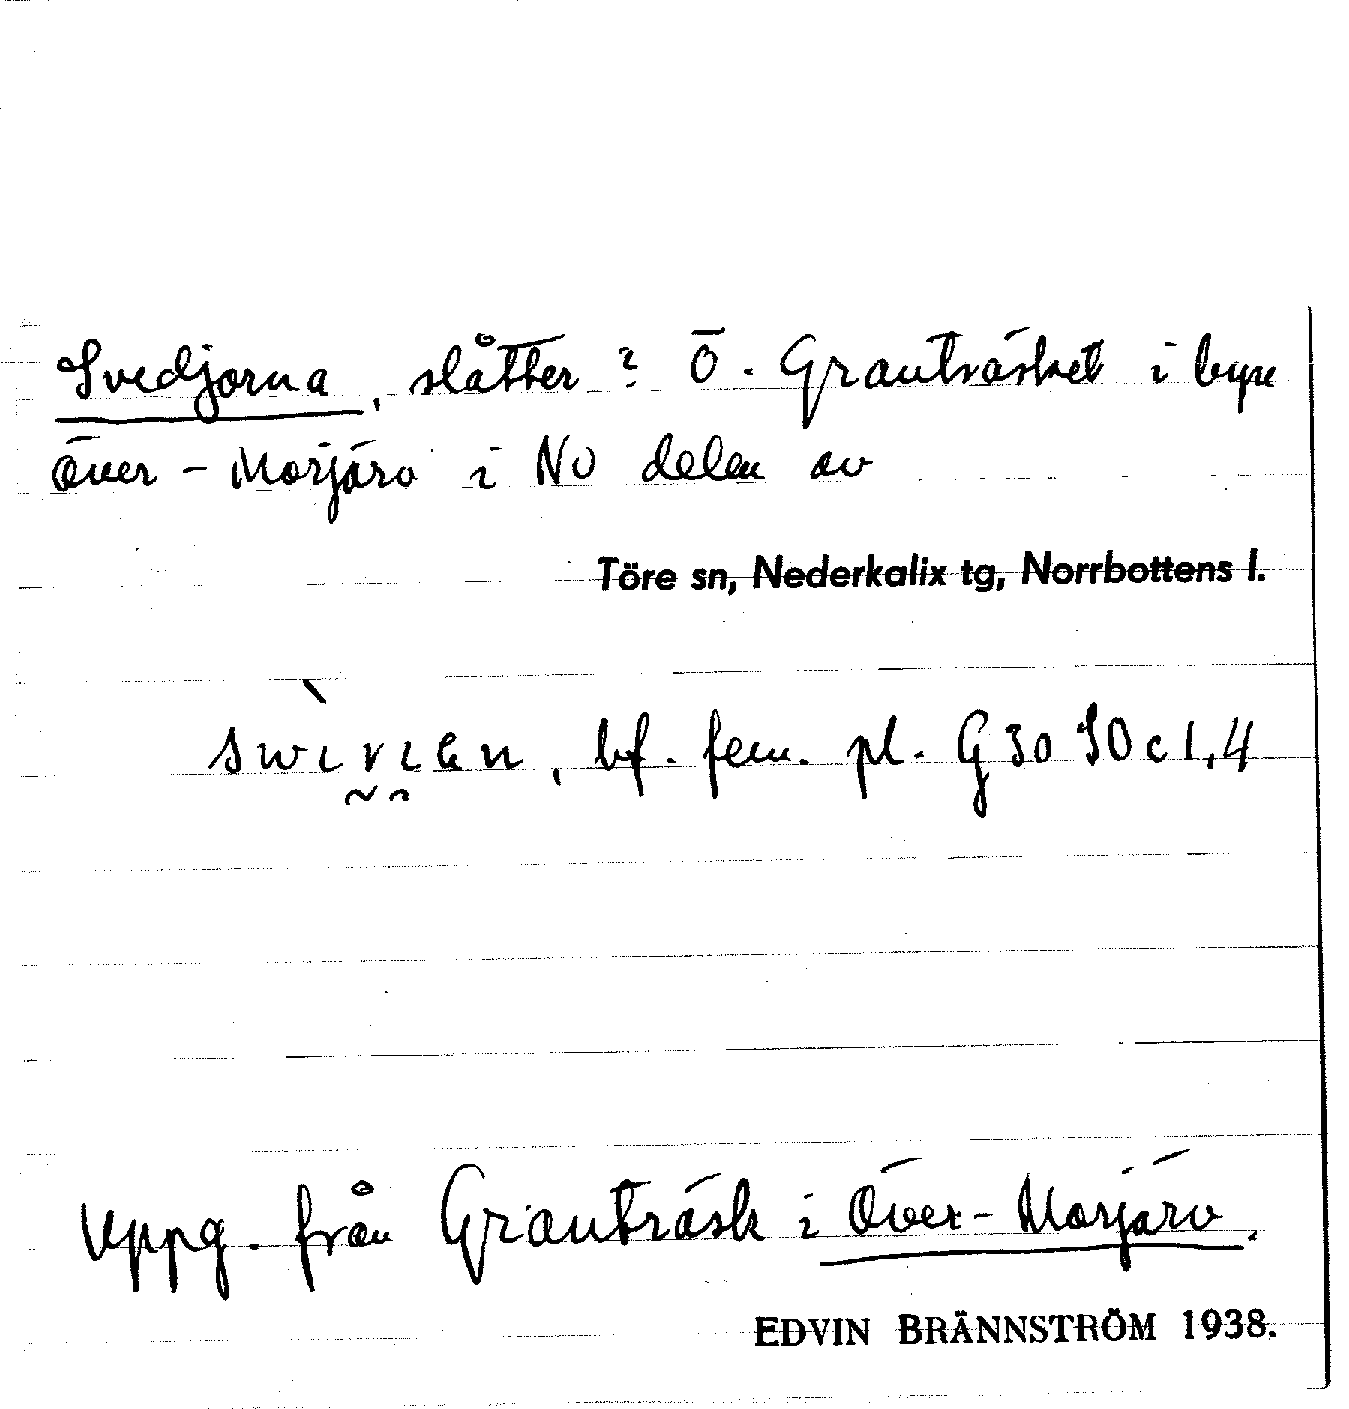 Svedjorna, slåtter? Ö. Granträsket i byn
Över-Morjärv i NO delen av
Töre sn, Nederkalix tg, Norrbottens l.
bf. fem. pl. G 30 SO c 1,4
Uppg. från Granträsk i Över-Morjärv.
EDVIN BRÄNNSTRÖM 1938.